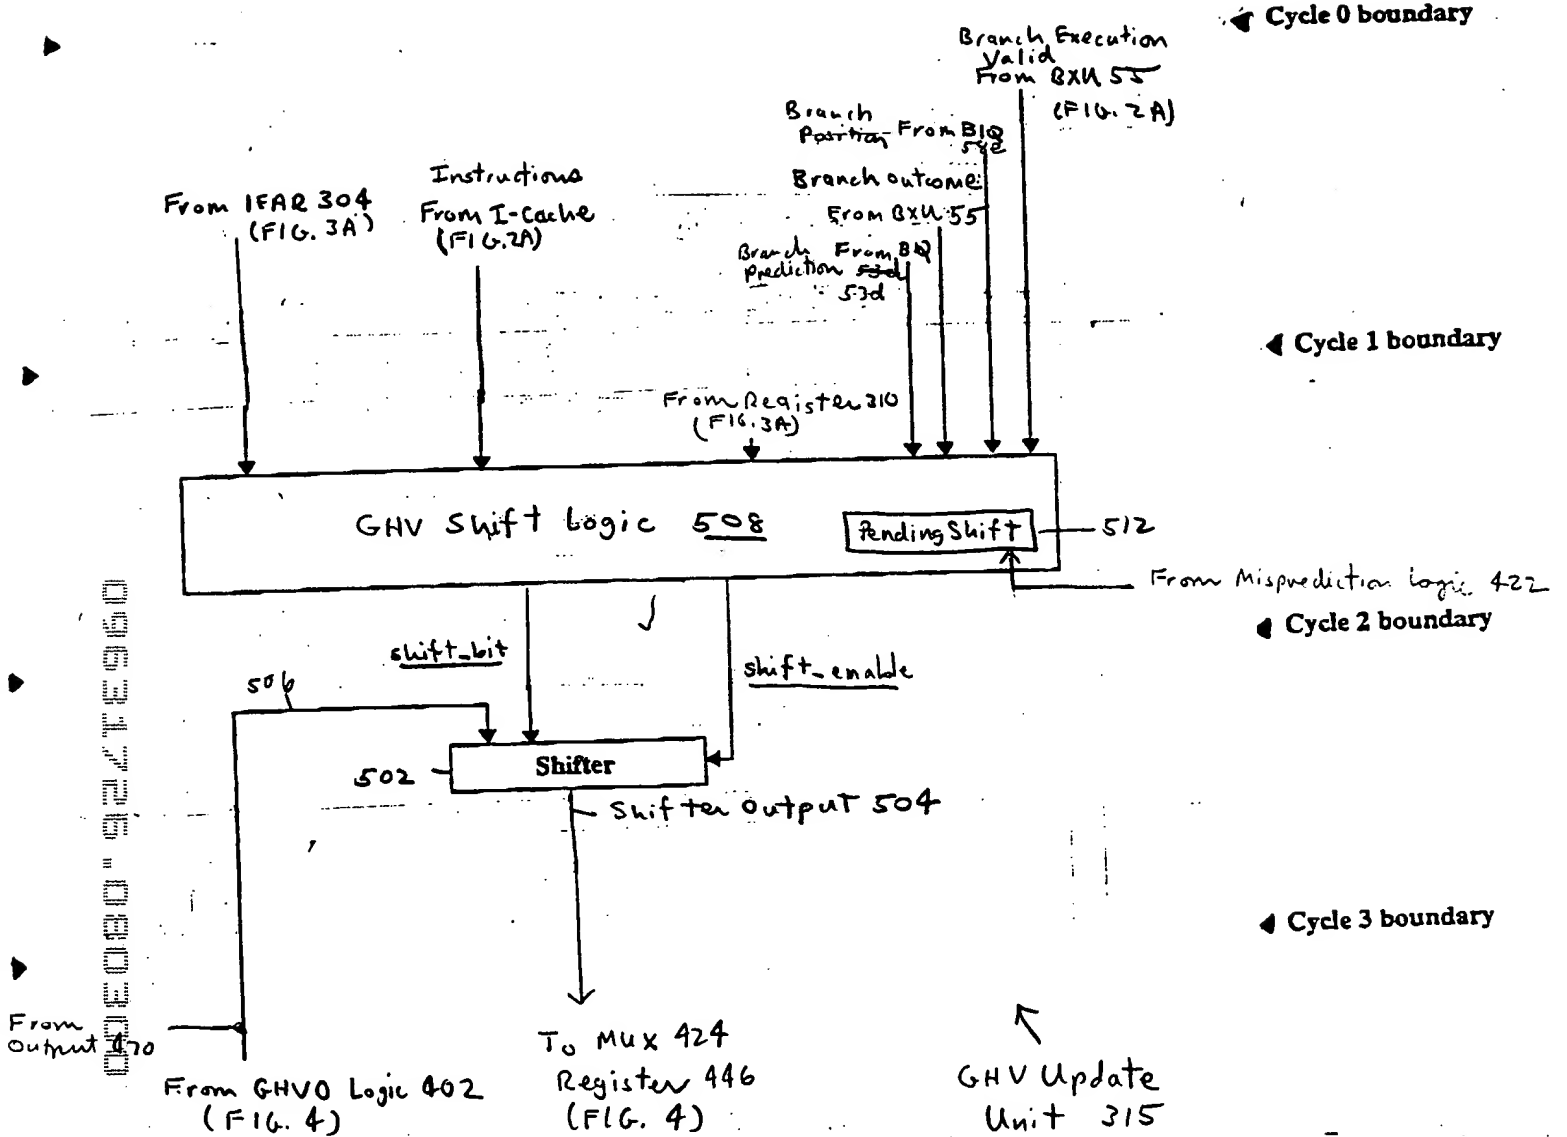 Cycle 0 boundary
Branch Execution
Valid
From BXU 55
(FIG. 2A)
Branch
Position From BIQ
Branch outcome
From BXU 55
Branch From BIQ
prediction 53d
53d
Instructions
From I-Cache
(FIG. 2A)
From IFAR 304
(FIG. 3A)
Cycle 1 boundary
From Register 310
(FIG. 3A)
GHV Shift Logic 508
Pending Shift
512
From Misprediction Logic 422
Cycle 2 boundary
shift_bit
shift_enable
506
502
Shifter
Shifter Output 504
Cycle 3 boundary
From
Output 470
From GHV0 Logic 402
(FIG. 4)
To MUX 424
Register 446
(FIG. 4)
GHV Update
Unit 315
09631726.080300